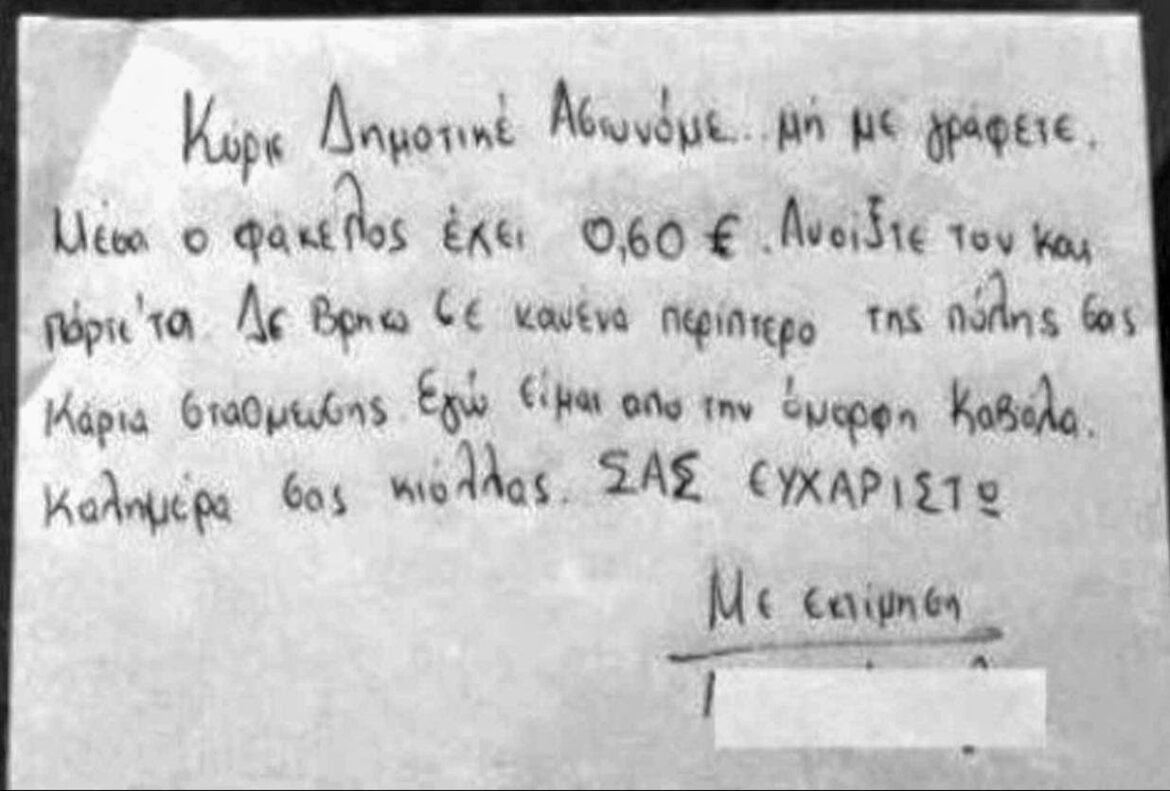 Κύριε Δημοτικέ Αστυνόμε.. μή με γράφετε.
Μέσα ο φάκελος έχει 0,60 €. Ανοίξτε τον και
πάρτε 'τα Δε βρηκα σε κανένα περίπτερο της πόλης σας
Κάρτα σταθμευσης Εγώ είμαι απο την όμορφη Καβάλα.
Καλημέρα σας κιόλλας. ΣΑΣ ΕΥΧΑΡΙΣΤΩ
Με εκτίμηση